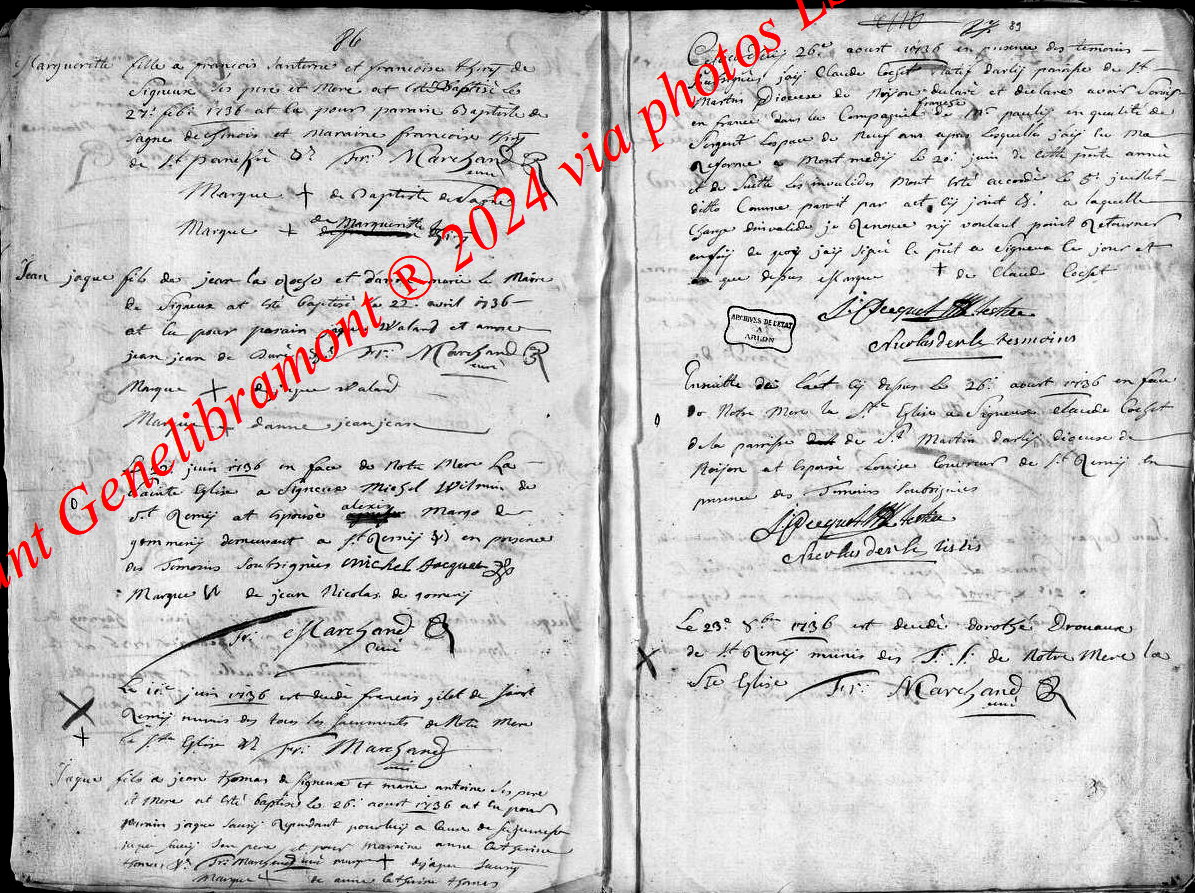 86
Margueritte fille a françois Santerne et francoise thiry de
Signeux ses pere et Mere at esté Baptisé le
27. feb. 1736 at eu pour parain Baptiste de
et Maraine francoise thiry
de St Fr: Marchand
curé
Marque + de Baptiste de
Marque + de Margueritte thiry
Jean jaque fils de jean la et d'anne marie le Maire
de Signeux at esté baptisé le 22 avril 1736
at eu pour parain jaque Waland et anne
jean jean de Fr: Marchand
curé
Marque + de jaque Waland
Marque + danne jeanjean
Le juin 1736 en face de Notre Mere La
Sainte Eglise a Signeux Michel Wilmin de
St Remij at Epousé alexis Margo de
gommerij demeurant a St Remij en presence
des Temoins Soubsignés Michel Jacquet
Marque de jean Nicolas de gomerij
Fr: Marchand
curé
Le 11e juin 1736 est decedé francois gilet de Saint
Remij munis des tous les Sacrements de Notre Mere
la Ste Eglise Fr: Marchand
curé
Jaque fils a jean thomas de Signeux et marie antoine ses pere
et Mere at esté baptisé le 26. aoust 1736 at eu pour
parain jaque Saurij Repondant pour luij a cause de sa jeunesse
Saurij Son pere et pour Maraine anne Catherine
thomas Fr: Marchand curé marque + de jaque Saurij
Marque + de anne catherine thomas
89
Cejourdhui 26e aoust 1736 en presence des temoins
Soubsignés jaij Claude Cocset Natif darlij paroisse de St
Martin Diocese de Noijon declaré et declare avoir Servis
en france dans la Compagnie françese de Mr pauly en qualité de
Sergent Lespace de Neuf ans apres Lesquelles jaij eu Ma
Reforme a Montmedij le 20e juin de cette pnte année
et de Suitte Les invalides Mont esté accordés le 6e juillet
ditto Comme paroit par act cij joint a laquelle
charge dinvalide je Renonce nij voulant point Retourner
enfoij de quoij jaij Signé le pnt a Signeux le jour et
que dessus Marque + de Claude Cocset
J: Pecquet testis
ARCHIVES DE L'ETAT
A
ARLON
Nicolas derle tesmoins
Ensuitte de l'act cij dessus le 26e aoust 1736 en face
de Notre Mere la Ste Eglise a Signeux Claude Cocset
de la parrisse de St Martin darlij diocese de
Noijon at Epousé Louise Couvreur de St Remij en
presence des Temoins Soubsignés
J: Pecquet testis
Nicolas derle testis
Le 23e 8bre 1736 est decedé dorothé Drouaux
de St Remij munis des S. S. de Notre Mere la
Ste Eglise Fr: Marchand
curé
Genelibramont ® 2024 via photos